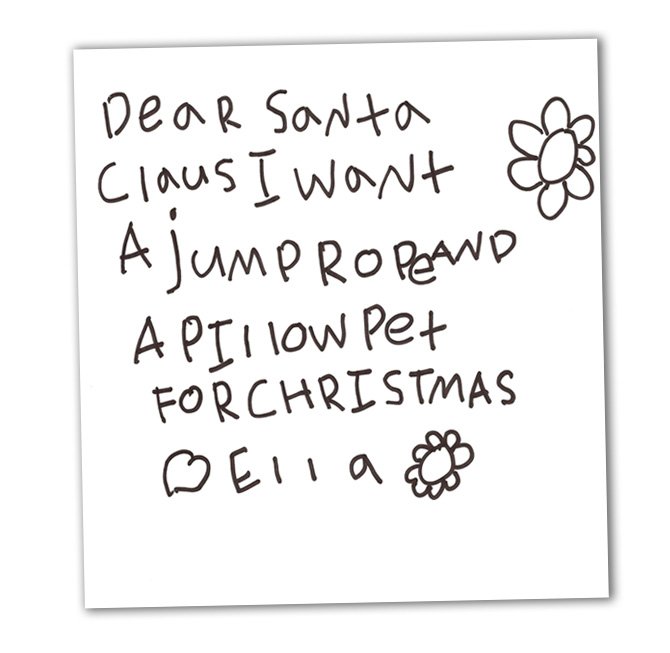 Dear Santa
Claus I want
A jump Rope AND
A PIllow Pet
FOR CHRISTMAS
Ella